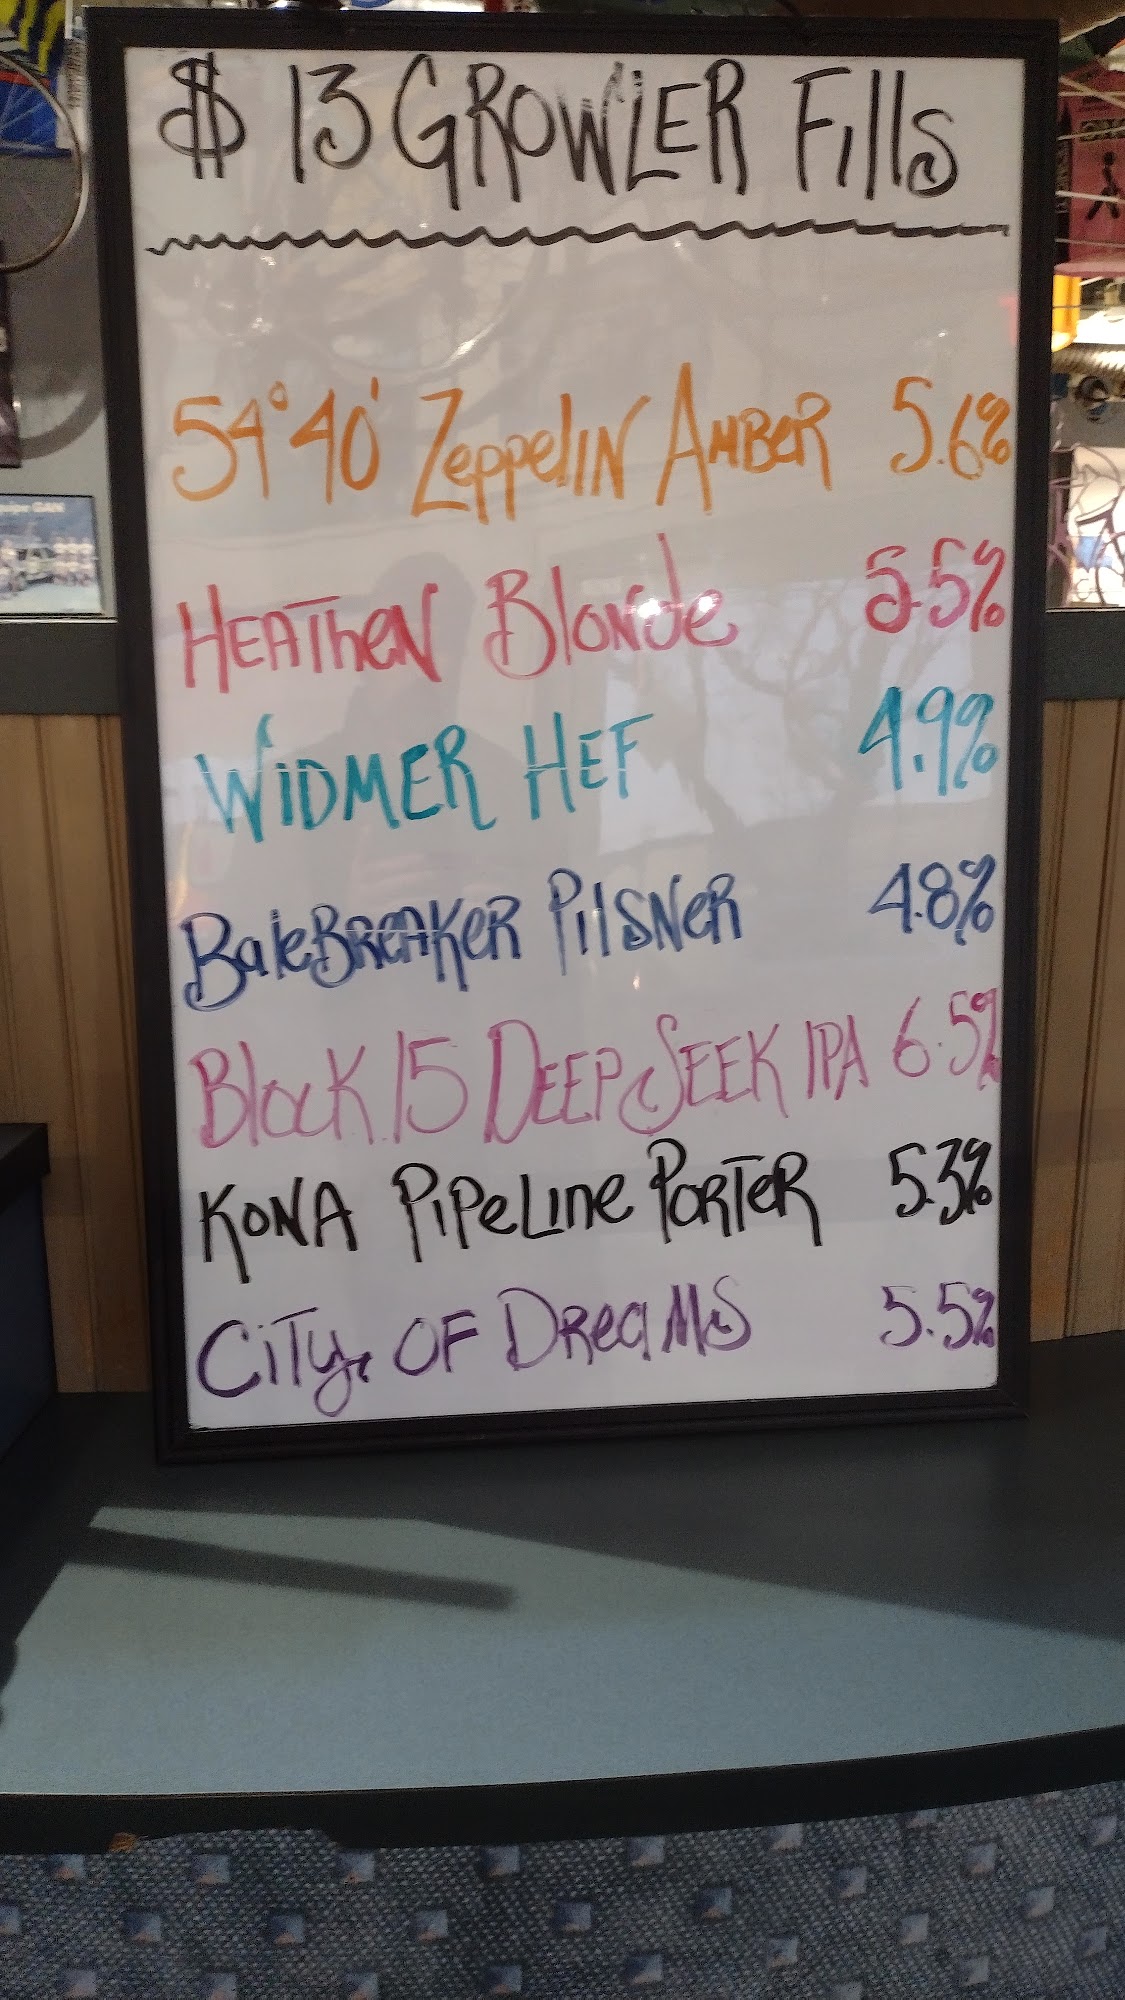 $13 GROWLER Fills
54°40' Zeppelin Amber 5.6%
HEATHEN Blonde 5.5%
WIDMER HEF 4.9%
BaleBREAKER PilSNER 4.8%
Block 15 DEEP SEEK IPA 6.5%
KONA PiPeLine PORTER 5.3%
CiTy OF DReaMS 5.5%